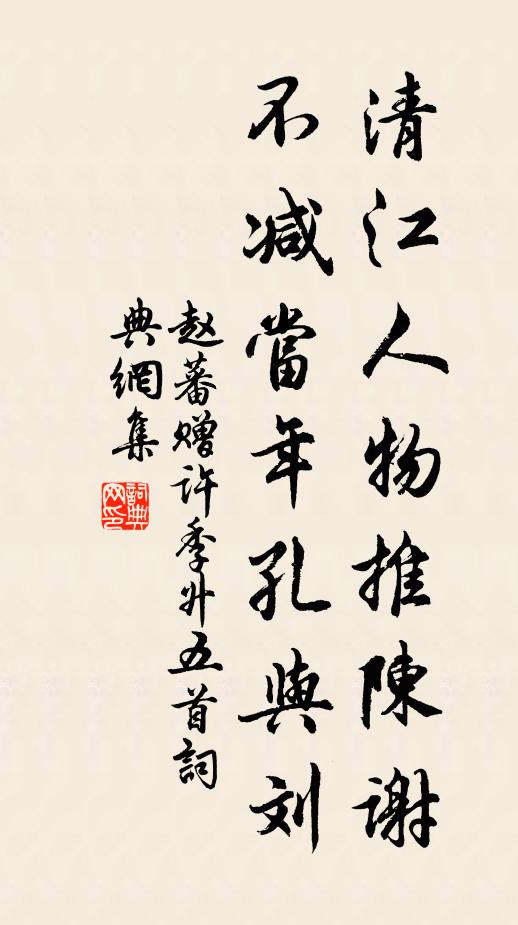 清江人物推陳謝
不减當年孔與刘
赵蕃赠许季升五首詞
典網集
詞典网印